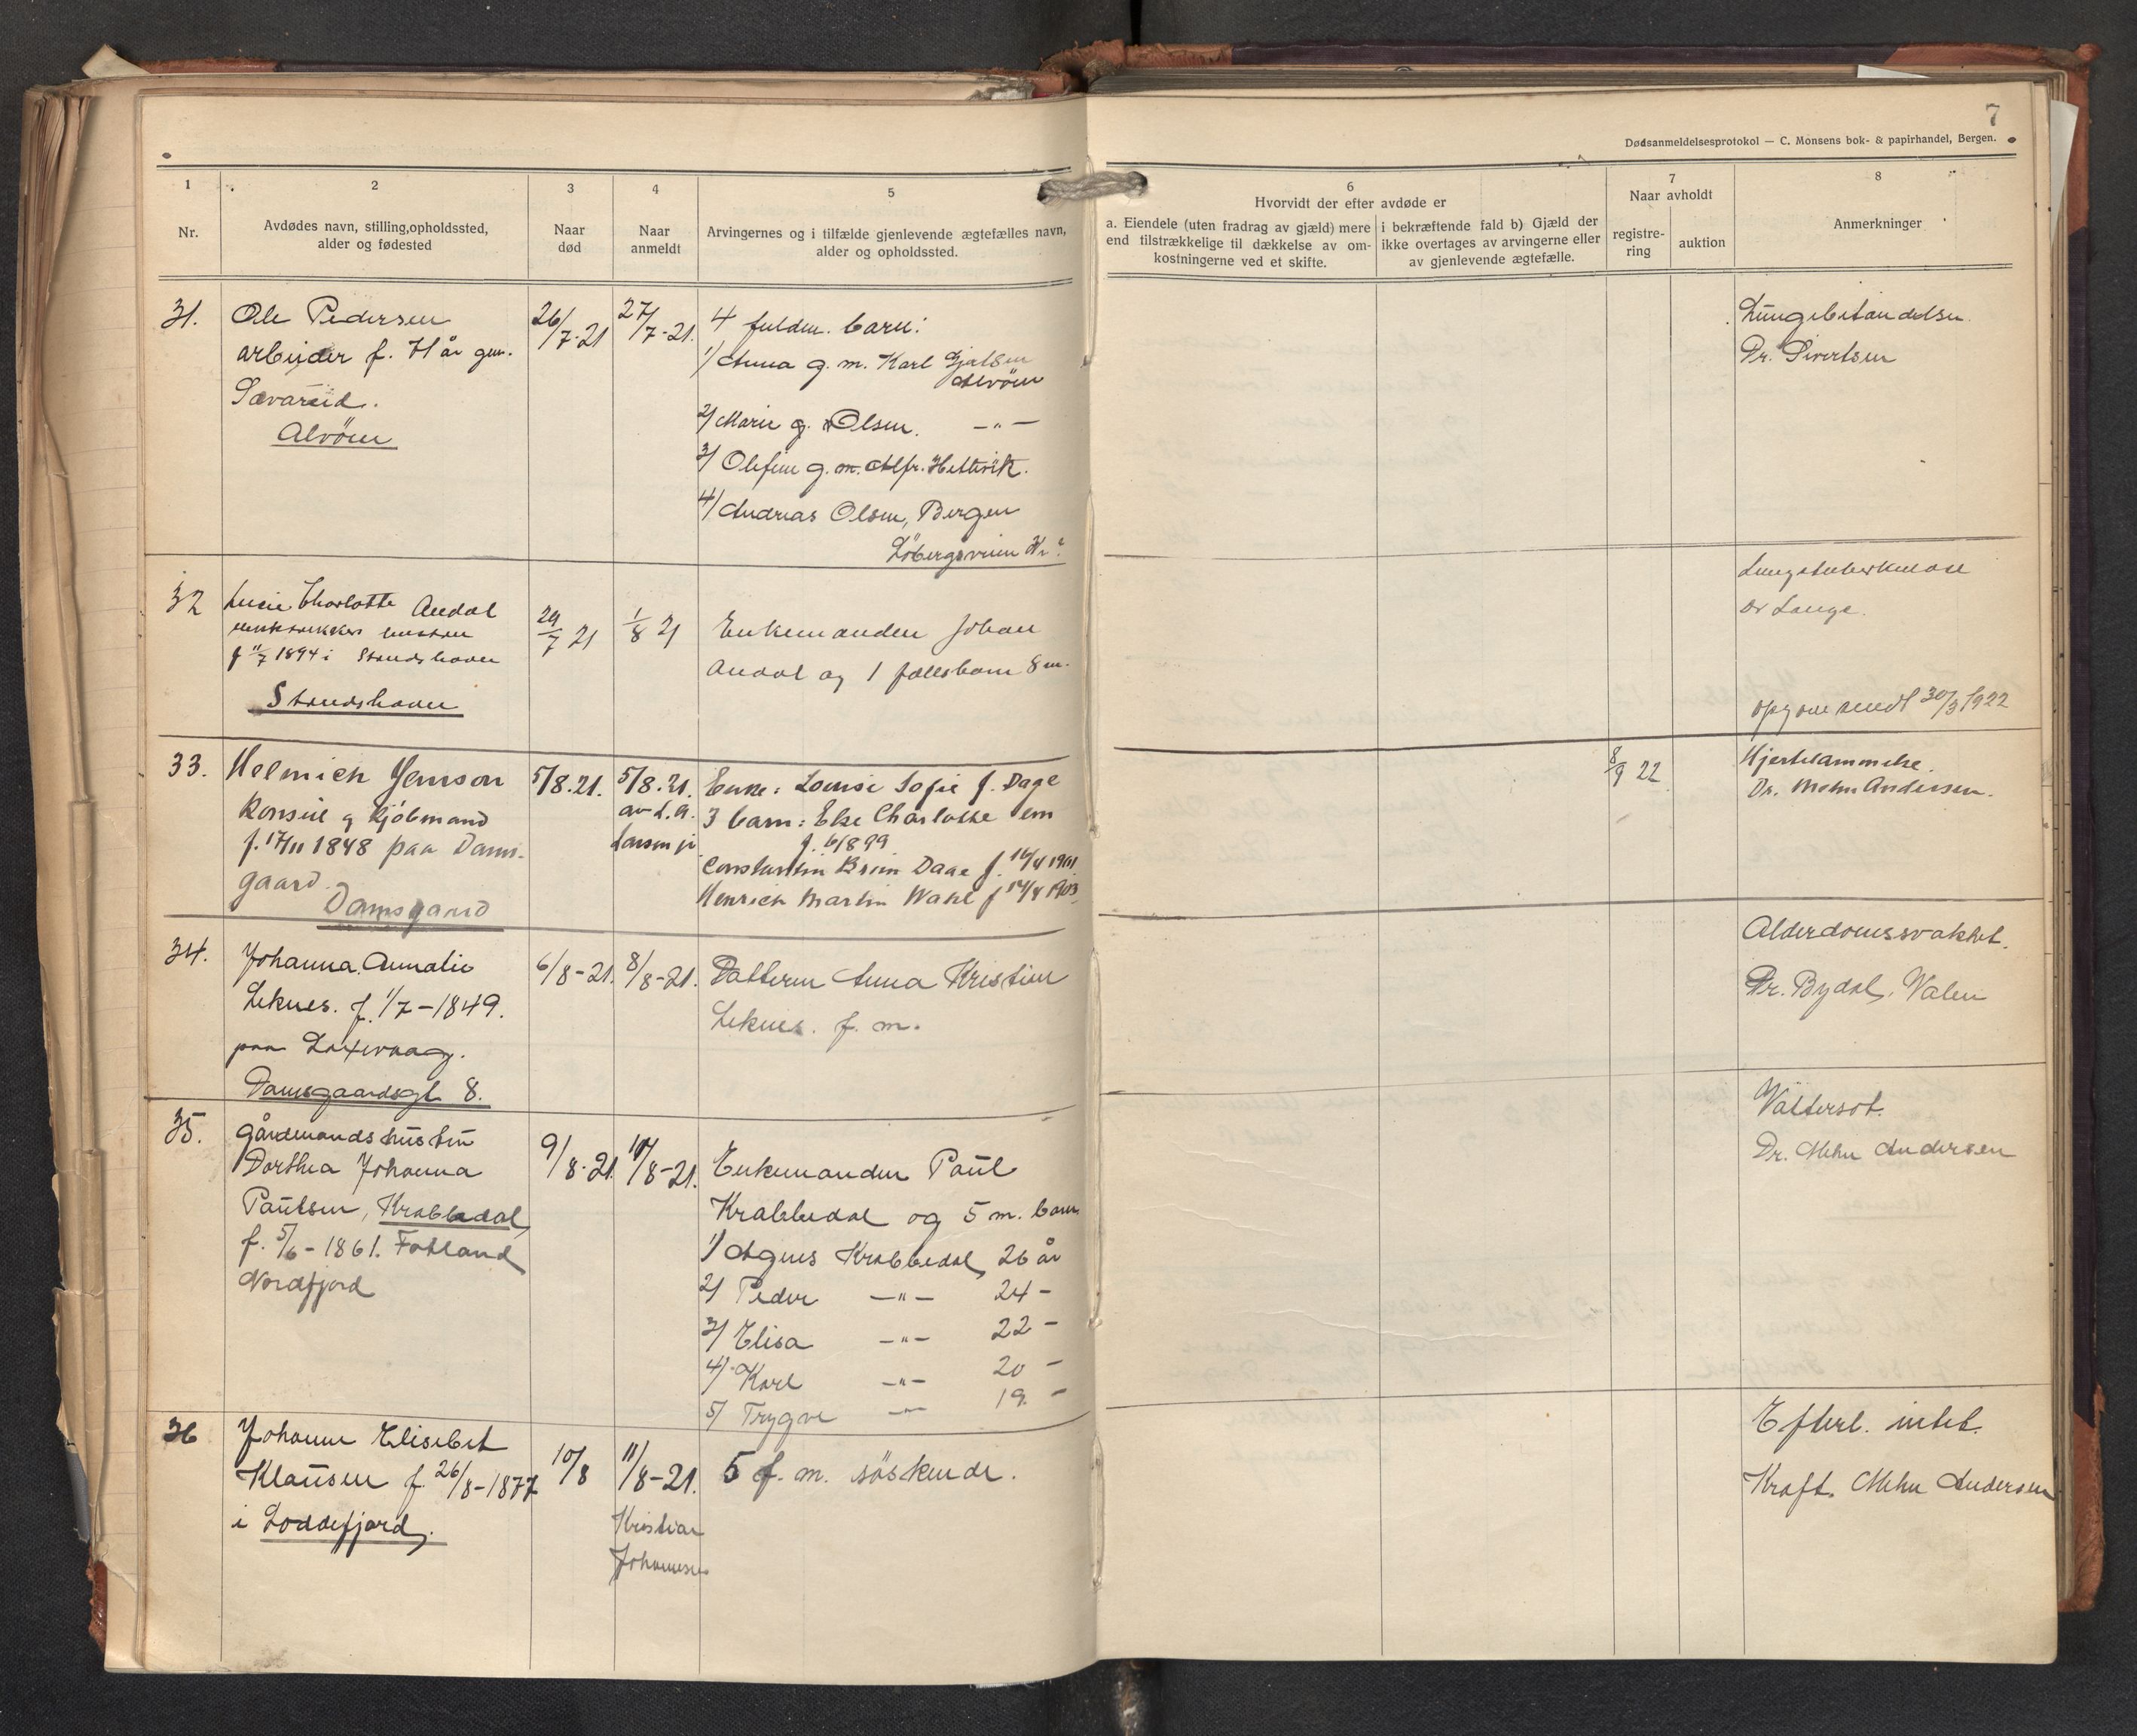 7
Dødsanmeldelsesprotokol — C. Monsens bok- & papirhandel, Bergen.
1
Nr.
2
Avdødes navn, stilling, opholdssted,
alder og fødested
3
Naar
død
4
Naar
anmeldt
5
Arvingernes og i tilfælde gjenlevende ægtefælles navn,
alder og opholdssted.
6
Hvorvidt der efter avdøde er
a. Eiendele (uten fradrag av gjæld) mere
end tilstrækkelige til dækkelse av om-
kostningerne ved et skifte.
i bekræftende fald b) Gjæld der
ikke overtages av arvingerne eller
av gjenlevende ægtefælle.
7
Naar avholdt
registre-
ring
auktion
8
Anmerkninger
31.
Ole Pedersen
arbeider f.
Sævareid.
Alvöen
26/7-21
27/7-21.
4 fuldm. barn:
1/ Anna g. m. Karl Gjertsen
Alvöen
2/ Marie g. Olsen. —"—
3/ Olefine g. m. Alfr. Hettevik.
4/ Andreas Olsen, Bergen
Löbergsveien
Lungebetændelse.
Dr. Sivertsen
32
Lucie Charlotte Andal
f 11/7 1894 i Strudshavn
Strudshavn
29/7 21
1/8 21
Enkemanden Johan
Andal og 1 fællesbarn 8 m.
Lungetuberkulose
Dr Lange.
opg over sendt 30/3 1922
33.
Helmich Janson
Konsul og kjöbmand
f. 17/11 1848 paa Dams-
gaard.
Damsgaard
5/8.21.
5/8.21.
av L.A.
Larsen jr
Enke: Louise Sofie f. Daae
3 barn: Else Charlotte Wm
f. 6/8 99
Constantin Brun Daae f. 16/4 1901
Henrich Martin Wahl f 14/4 1903.
8/9 22
Hjertelammelse.
Dr. Mohn Andersen.
34.
Johanna Amalie
Leknes. f. 1/7-1849.
paa Laxevaag.
Damsgaardsgt. 8.
6/8-21.
8/8-21.
Datteren Anna Kristine
Leknes. f. m.
Alderdomssvakhet.
Dr. Bydal, Valen
35.
Gårdmandshustru
Dorthea Johanna
Paulsen, Krabbedal,
f. 5/6-1861. Fotland
Nordfjord
9/8-21.
10/8-21.
Enkemanden Paul
Krabbedal og 5 m. barn
1/ Agnes Krabbedal, 26 år
2/ Peder —"— 24 -
3/ Elisa —"— 22 -
4/ Karl —"— 20 -
5/ Trygve —"— 19. -
Vattersot.
Dr. Mohn Andersen
36
Johanne Elisebet
Klausen f. 26/8-1877
i Loddefjord.
10/8
11/8-21.
Kristian
Johannesen
5 f. m. söskende.
Efterl. intet.
Kræft. Mohn Andersen